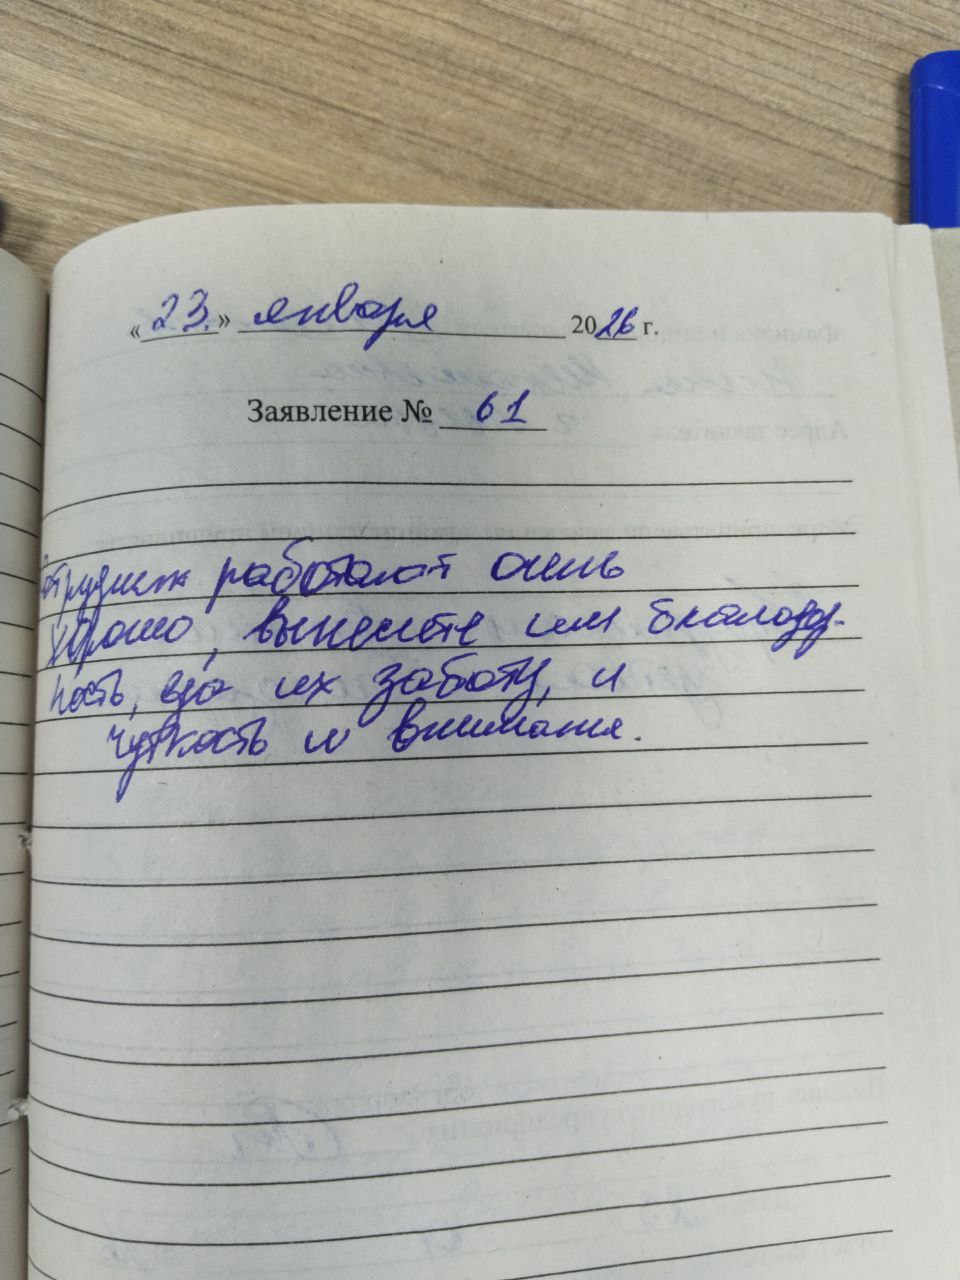 «23.» января 2026 г.
Заявление № 61
работают очень
хорошо, вынесите им благодар-
ность, за их заботу, и
чуткость и внимания.